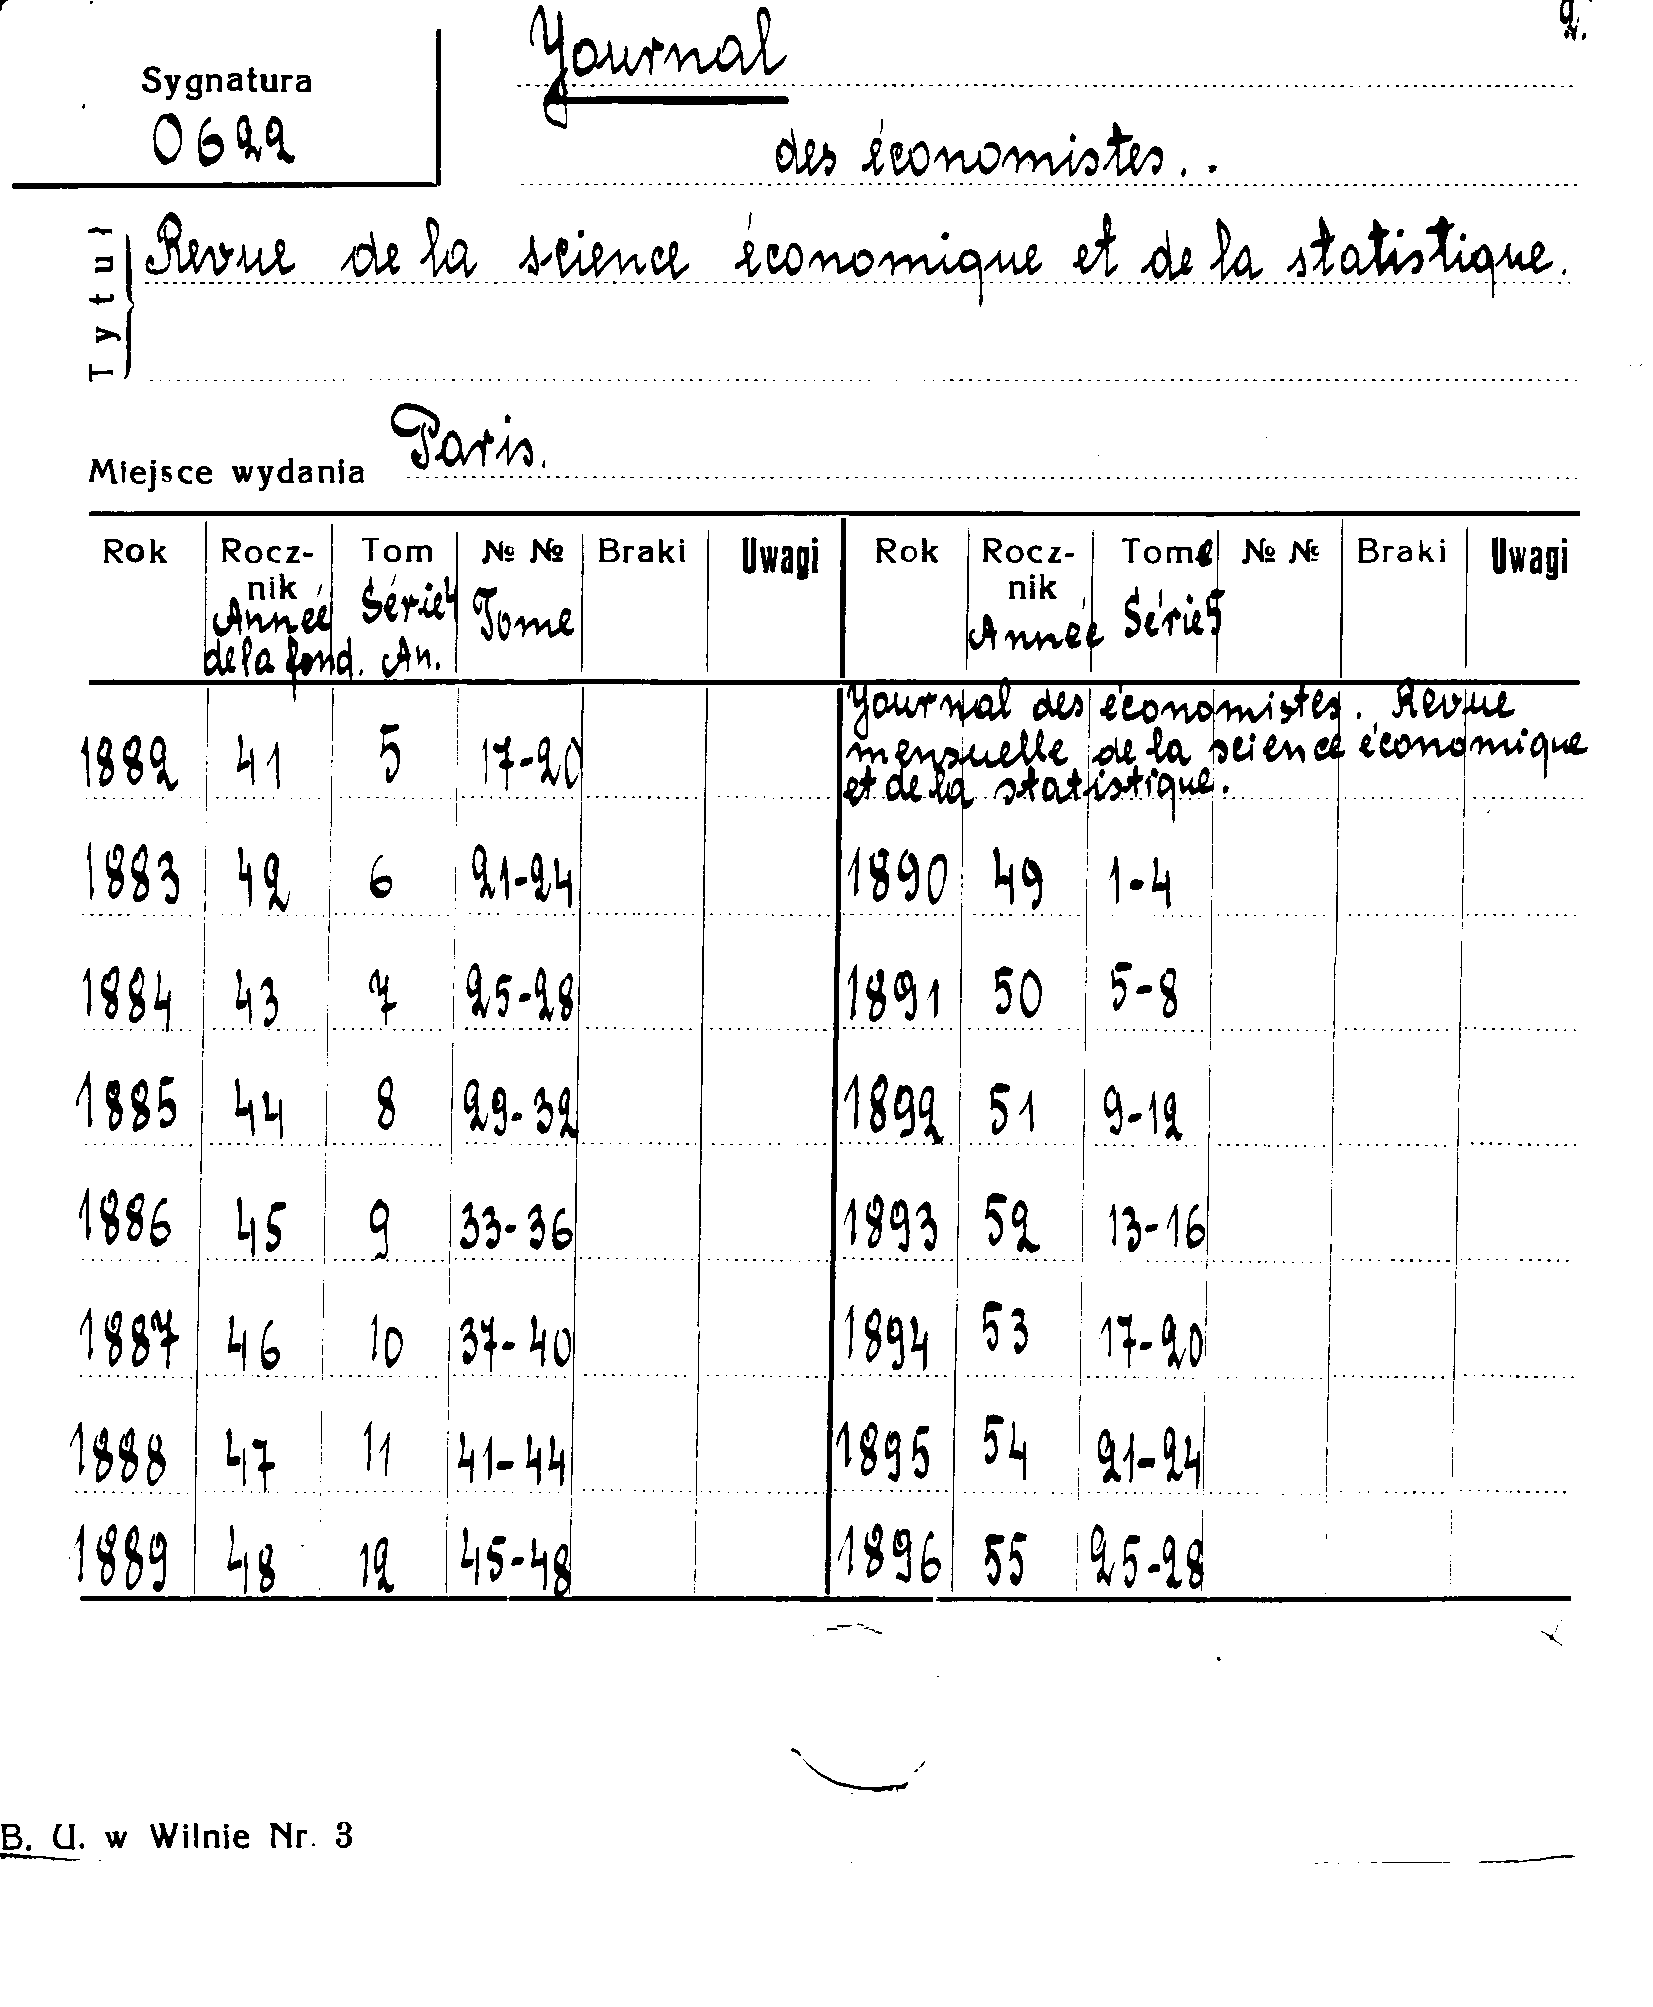 2.
Sygnatura
0622
Journal
des économistes. .
Tytuł
Revue de la science économique et de la statistique.
Miejsce wydania Paris.
Rok Rocz- Tom № № Braki Uwagi Rok Rocz- Tome № № Braki Uwagi
nik Série 4 Tome nik Série 5
Anneé Anneé
de la fond. An.
Journal des économistes. Revue
mensuelle de la science économique
et de la statistique.
1882 41 5 17-20
1883 42 6 21-24 1890 49 1-4
1884 43 7 25-28 1891 50 5-8
1885 44 8 29-32 1892 51 9-12
1886 45 9 33-36 1893 52 13-16
1887 46 10 37-40 1894 53 17-20
1888 47 11 41-44 1895 54 21-24
1889 48 12 45-48 1896 55 25-28
B. U. w Wilnie Nr. 3